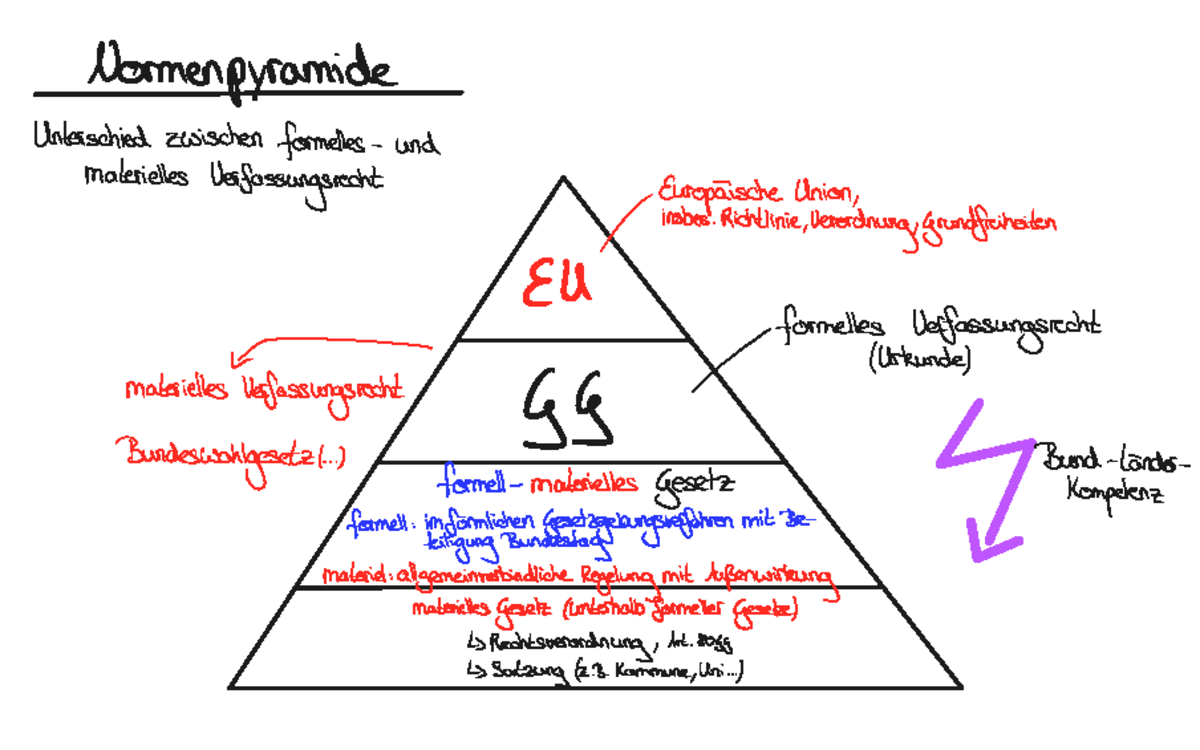 Normenpyramide
Unterschied zwischen formelles- und
materielles Verfassungsrecht
Europäische Union,
insbes. Richtlinie, Verordnung, Grundfreiheiten
EU
formelles Verfassungsrecht
(Urkunde)
materielles Verfassungsrecht
GG
Bundeswahlgesetz (...)
Bund-Länder-
Kompetenz
formell-materielles Gesetz
formell: im förmlichen Gesetzgebungsverfahren mit Be-
teiligung Bundestag
materiel: allgemeinverbindliche Regelung mit Außenwirkung
materielles Gesetz (unterhalb formeller Gesetze)
↳ Rechtsverordnung, Art. 80 GG
↳ Satzung (z.B. Kommune, Uni...)